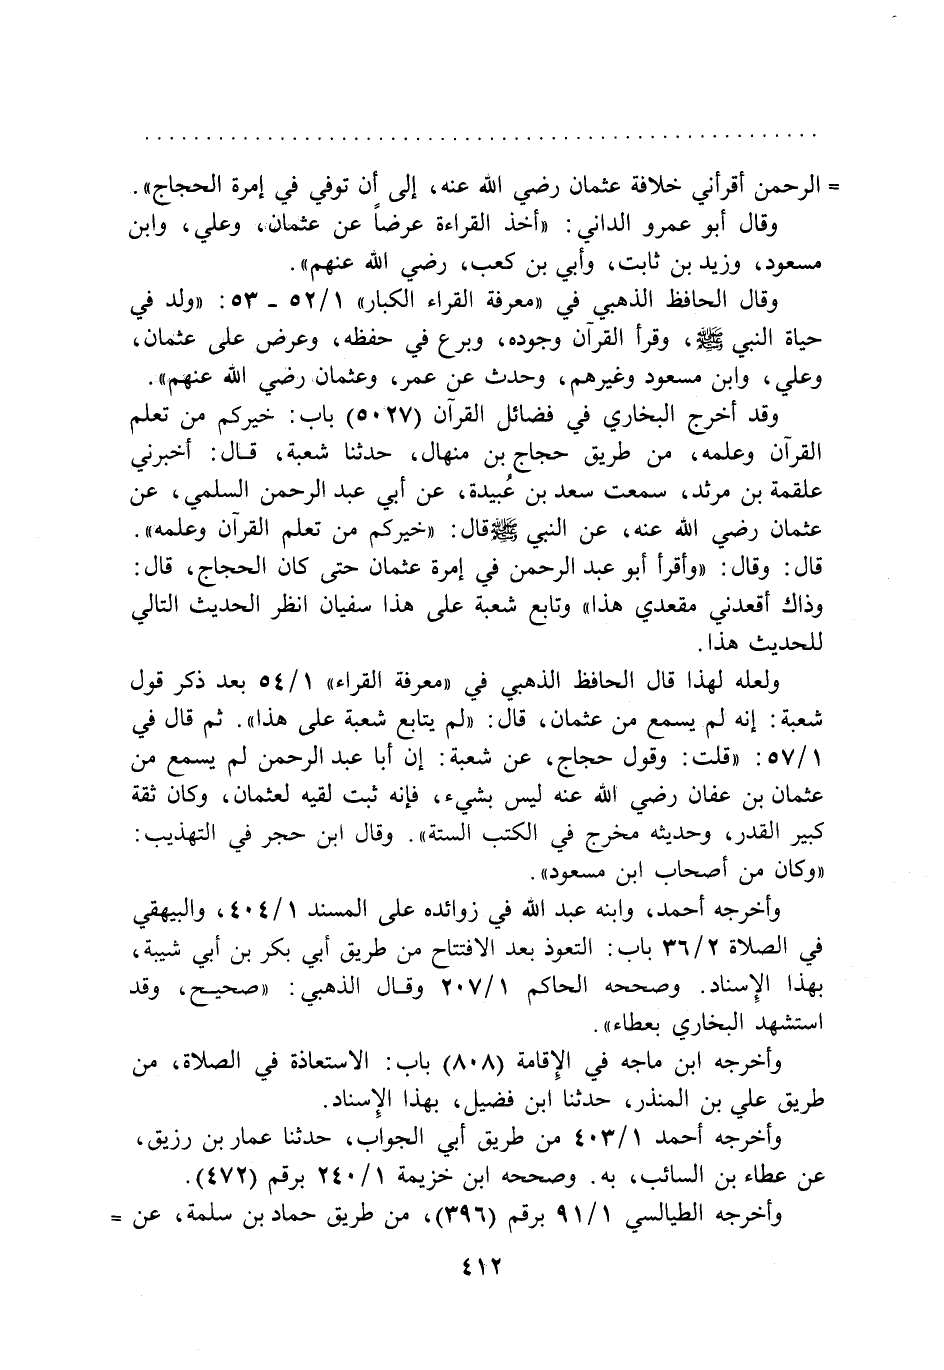 = الرحمن أقرأني خلافة عثمان رضي الله عنه، إلى أن توفي في إمرة الحجاج».
وقال أبو عمرو الداني: «أخذ القراءة عرضاً عن عثمان، وعلي، وابن
مسعود، وزيد بن ثابت، وأبي بن كعب، رضي الله عنهم».
وقال الحافظ الذهبي في «معرفة القراء الكبار» ٥٢/١ - ٥٣: «ولد في
حياة النبي ﷺ، وقرأ القرآن وجوده، وبرع في حفظه، وعرض على عثمان،
وعلي، وابن مسعود وغيرهم، وحدث عن عمر، وعثمان رضي الله عنهم».
وقد أخرج البخاري في فضائل القرآن (٥٠٢٧) باب: خيركم من تعلم
القرآن وعلمه، من طريق حجاج بن منهال، حدثنا شعبة، قال: أخبرني
علقمة بن مرثد، سمعت سعد بن عُبيدة، عن أبي عبد الرحمن السلمي، عن
عثمان رضي الله عنه، عن النبي ﷺ قال: «خيركم من تعلم القرآن وعلمه».
قال: وقال: «وأقرأ أبو عبد الرحمن في إمرة عثمان حتى كان الحجاج، قال:
وذاك أقعدني مقعدي هذا» وتابع شعبة على هذا سفيان انظر الحديث التالي
للحديث هذا.
ولعله لهذا قال الحافظ الذهبي في «معرفة القراء» ٥٤/١ بعد ذكر قول
شعبة: إنه لم يسمع من عثمان، قال: «لم يتابع شعبة على هذا». ثم قال في
٥٧/١: «قلت: وقول حجاج، عن شعبة: إن أبا عبد الرحمن لم يسمع من
عثمان بن عفان رضي الله عنه ليس بشيء، فإنه ثبت لقيه لعثمان، وكان ثقة
كبير القدر، وحديثه مخرج في الكتب الستة». وقال ابن حجر في التهذيب:
«وكان من أصحاب ابن مسعود».
وأخرجه أحمد، وابنه عبد الله في زوائده على المسند ٤٠٤/١، والبيهقي
في الصلاة ٣٦/٢ باب: التعوذ بعد الافتتاح من طريق أبي بكر بن أبي شيبة،
بهذا الإسناد. وصححه الحاكم ٢٠٧/١ وقال الذهبي: «صحيح، وقد
استشهد البخاري بعطاء».
وأخرجه ابن ماجه في الإقامة (٨٠٨) باب: الاستعاذة في الصلاة، من
طريق علي بن المنذر، حدثنا ابن فضيل، بهذا الإسناد.
وأخرجه أحمد ٤٠٣/١ من طريق أبي الجواب، حدثنا عمار بن رزيق،
عن عطاء بن السائب، به. وصححه ابن خزيمة ٢٤٠/١ برقم (٤٧٢).
وأخرجه الطيالسي ٩١/١ برقم (٣٩٦)، من طريق حماد بن سلمة، عن =
٤١٢